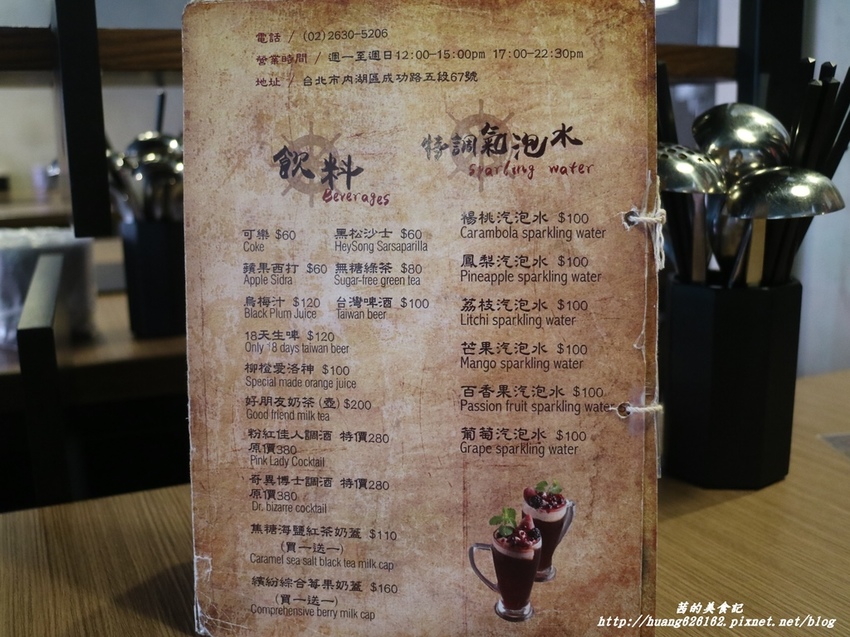 電話 / (02)2630-5206
營業時間 / 週一至週日12:00-15:00pm 17:00-22:30pm
地址 / 台北市內湖區成功路五段67號
飲料
Beverages
可樂 $60 黑松沙士 $60
Coke HeySong Sarsaparilla
蘋果西打 $60 無糖綠茶 $80
Apple Sidra Sugar-free green tea
烏梅汁 $120 台灣啤酒 $100
Black Plum Juice Taiwan beer
18天生啤 $120
Only 18 days taiwan beer
柳橙愛洛神 $100
Special made orange juice
好朋友奶茶(壺)$200
Good friend milk tea
粉紅佳人調酒 特價280
原價380
Pink Lady Cocktail
奇異博士調酒 特價280
原價380
Dr. bizarre cocktail
焦糖海鹽紅茶奶蓋 $110
(買一送一)
Caramel sea salt black tea milk cap
繽紛綜合莓果奶蓋 $160
(買一送一)
Comprehensive berry milk cap
特調氣泡水
Sparling water
楊桃汽泡水 $100
Carambola sparkling water
鳳梨汽泡水 $100
Pineapple sparkling water
荔枝汽泡水 $100
Litchi sparkling water
芒果汽泡水 $100
Mango sparkling water
百香果汽泡水 $100
Passion fruit sparkling water
葡萄汽泡水 $100
Grape sparkling water
茜的美食記
http://huang626162.pixnet.net/blog